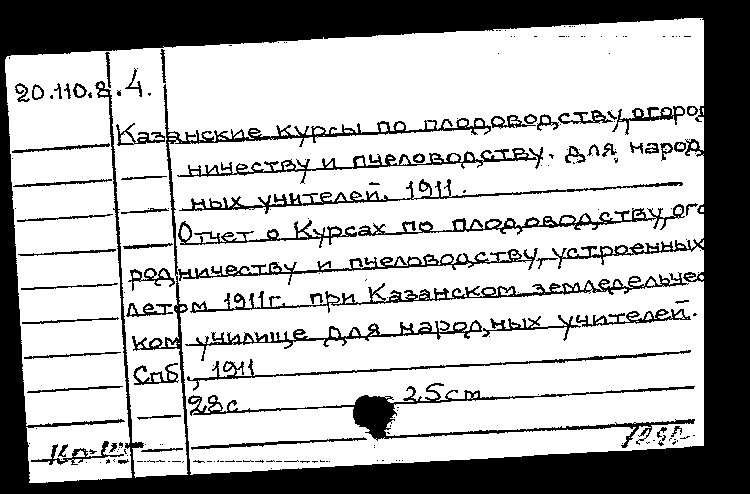 20.110.2.4.
Казанские курсы по плодоводству, огород
ничеству и пчеловодству. для народ
ных учителей. 1911.
Отчет о Курсах по плодоводству, ого
родничеству и пчеловодству, устроенных
летом 1911г. при Казанском земледельчес
ком училище для народных учителей.
Спб., 1911
28с. 25cm